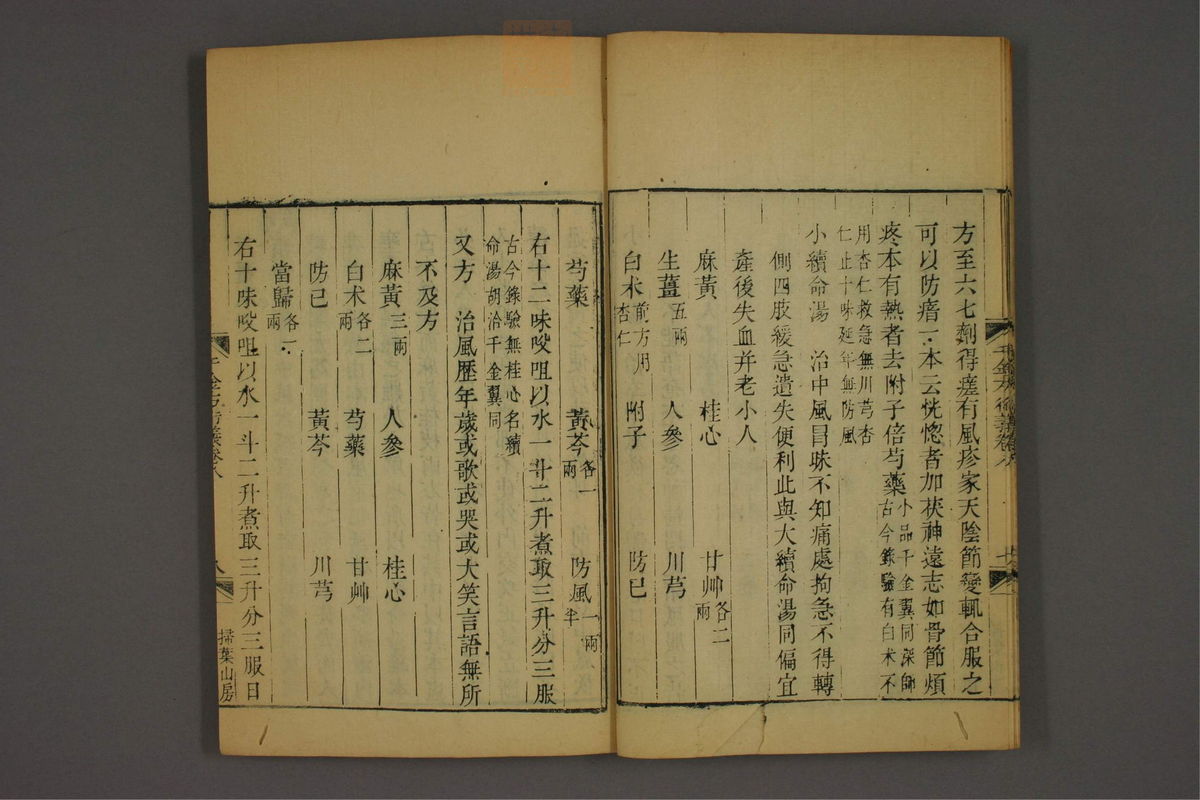 方至六七劑得瘥有風疹家天陰節變輒合服之
可以防瘖一本云恍惚者加茯神遠志如骨節煩
疼本有熱者去附子倍芍藥小品千金翼同深師
古今錄驗有白术不
用杏仁救急無川芎杏
仁止十味延年無防風
小續命湯　治中風冒昧不知痛處拘急不得轉
側四肢緩急遺失便利此與大續命湯同偏宜
產後失血并老小人
麻黃　桂心　甘艸各二
兩
生薑五兩　人參　川芎
白术　附子　防已
前方用
杏仁
芍藥　黃芩各一
兩　防風一兩
半
右十二味㕮咀以水一斗二升煮取三升分三服
古今錄驗無桂心名續
命湯胡洽千金翼同
又方　治風歷年歲或歌或哭或大笑言語無所
不及方
麻黃三兩　人參　桂心
白术各二
兩　芍藥　甘艸
防已　黃芩　川芎
當歸各一
兩
右十味㕮咀以水一斗二升煮取三升分三服日
掃葉山房